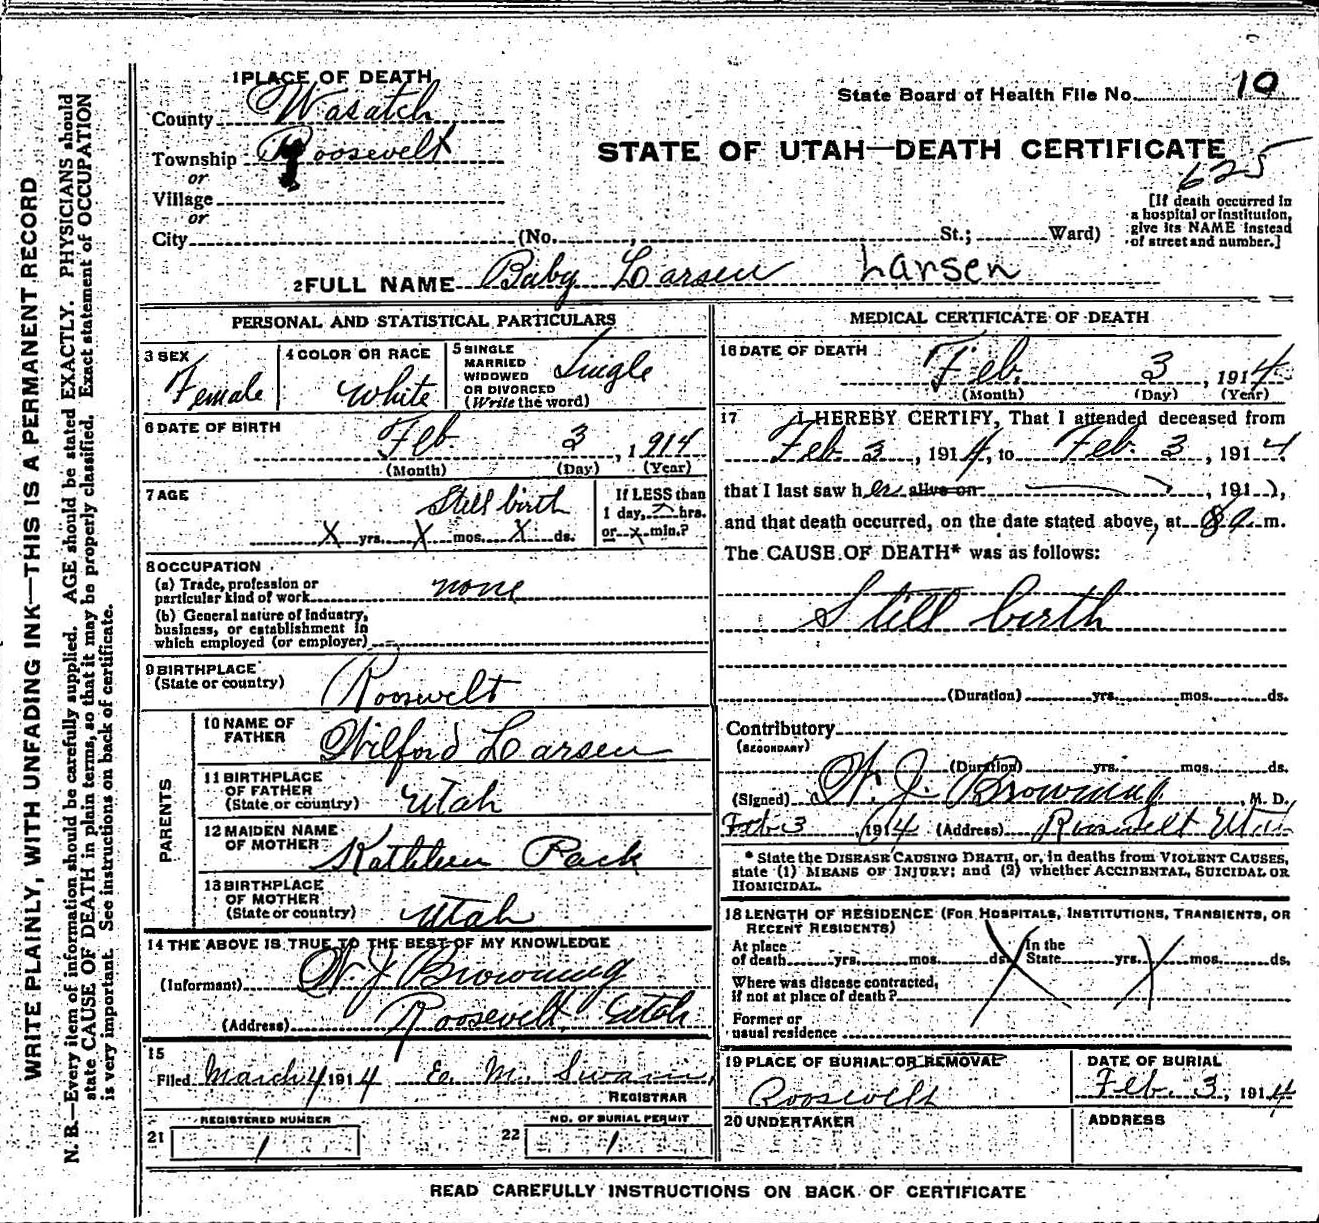 State Board of Health File No. 10
STATE OF UTAH—DEATH CERTIFICATE
625
1 PLACE OF DEATH
County Wasatch
Township Roosevelt
or
Village
or
City (No. , St.; Ward)
[If death occurred in
a hospital or institution,
give its NAME instead
of street and number.]
2 FULL NAME Baby Larsen Larsen
PERSONAL AND STATISTICAL PARTICULARS
3 SEX
Female
4 COLOR OR RACE
White
5 SINGLE
MARRIED
WIDOWED
OR DIVORCED
(Write the word)
Single
6 DATE OF BIRTH
Feb 3, 1914
(Month) (Day) (Year)
7 AGE
Still birth
X yrs. X mos. X ds.
If LESS than
1 day, hrs.
or x min.?
8 OCCUPATION
(a) Trade, profession or
particular kind of work none
(b) General nature of industry,
business, or establishment in
which employed (or employer)
9 BIRTHPLACE
(State or country)
Roosevelt
PARENTS
10 NAME OF
FATHER
Wilford Larsen
11 BIRTHPLACE
OF FATHER
(State or country)
Utah
12 MAIDEN NAME
OF MOTHER
Kathleen Pack
13 BIRTHPLACE
OF MOTHER
(State or country)
Utah
14 THE ABOVE IS TRUE TO THE BEST OF MY KNOWLEDGE
(Informant) W J Browning
(Address) Roosevelt, Utah
15
Filed March 4 1914 E. M. Swain,
REGISTRAR
REGISTERED NUMBER
21 1
NO. OF BURIAL PERMIT
22 1
MEDICAL CERTIFICATE OF DEATH
16 DATE OF DEATH
Feb. 3, 1914
(Month) (Day) (Year)
17 I HEREBY CERTIFY, That I attended deceased from
Feb 3, 1914, to Feb. 3, 1914
that I last saw her alive on , 191 ,
and that death occurred, on the date stated above, at m.
The CAUSE OF DEATH* was as follows:
Still birth
(Duration) yrs. mos. ds.
Contributory
(SECONDARY)
(Duration) yrs. mos. ds.
(Signed) W. J. Browning, M. D.
Feb 3 1914 (Address) Roosevelt Utah
* State the DISEASE CAUSING DEATH, or, in deaths from VIOLENT CAUSES,
state (1) MEANS OF INJURY; and (2) whether ACCIDENTAL, SUICIDAL OR
HOMICIDAL.
18 LENGTH OF RESIDENCE (FOR HOSPITALS, INSTITUTIONS, TRANSIENTS, OR
RECENT RESIDENTS)
At place
of death yrs. mos. ds.
In the
State yrs. mos. ds.
Where was disease contracted,
if not at place of death?
Former or
usual residence
19 PLACE OF BURIAL OR REMOVAL
Roosevelt
DATE OF BURIAL
Feb. 3, 1914
20 UNDERTAKER
ADDRESS
READ CAREFULLY INSTRUCTIONS ON BACK OF CERTIFICATE
WRITE PLAINLY, WITH UNFADING INK—THIS IS A PERMANENT RECORD
N. B.—Every item of information should be carefully supplied. AGE should be stated EXACTLY. PHYSICIANS should
state CAUSE OF DEATH in plain terms, so that it may be properly classified. Exact statement of OCCUPATION
is very important. See instructions on back of certificate.